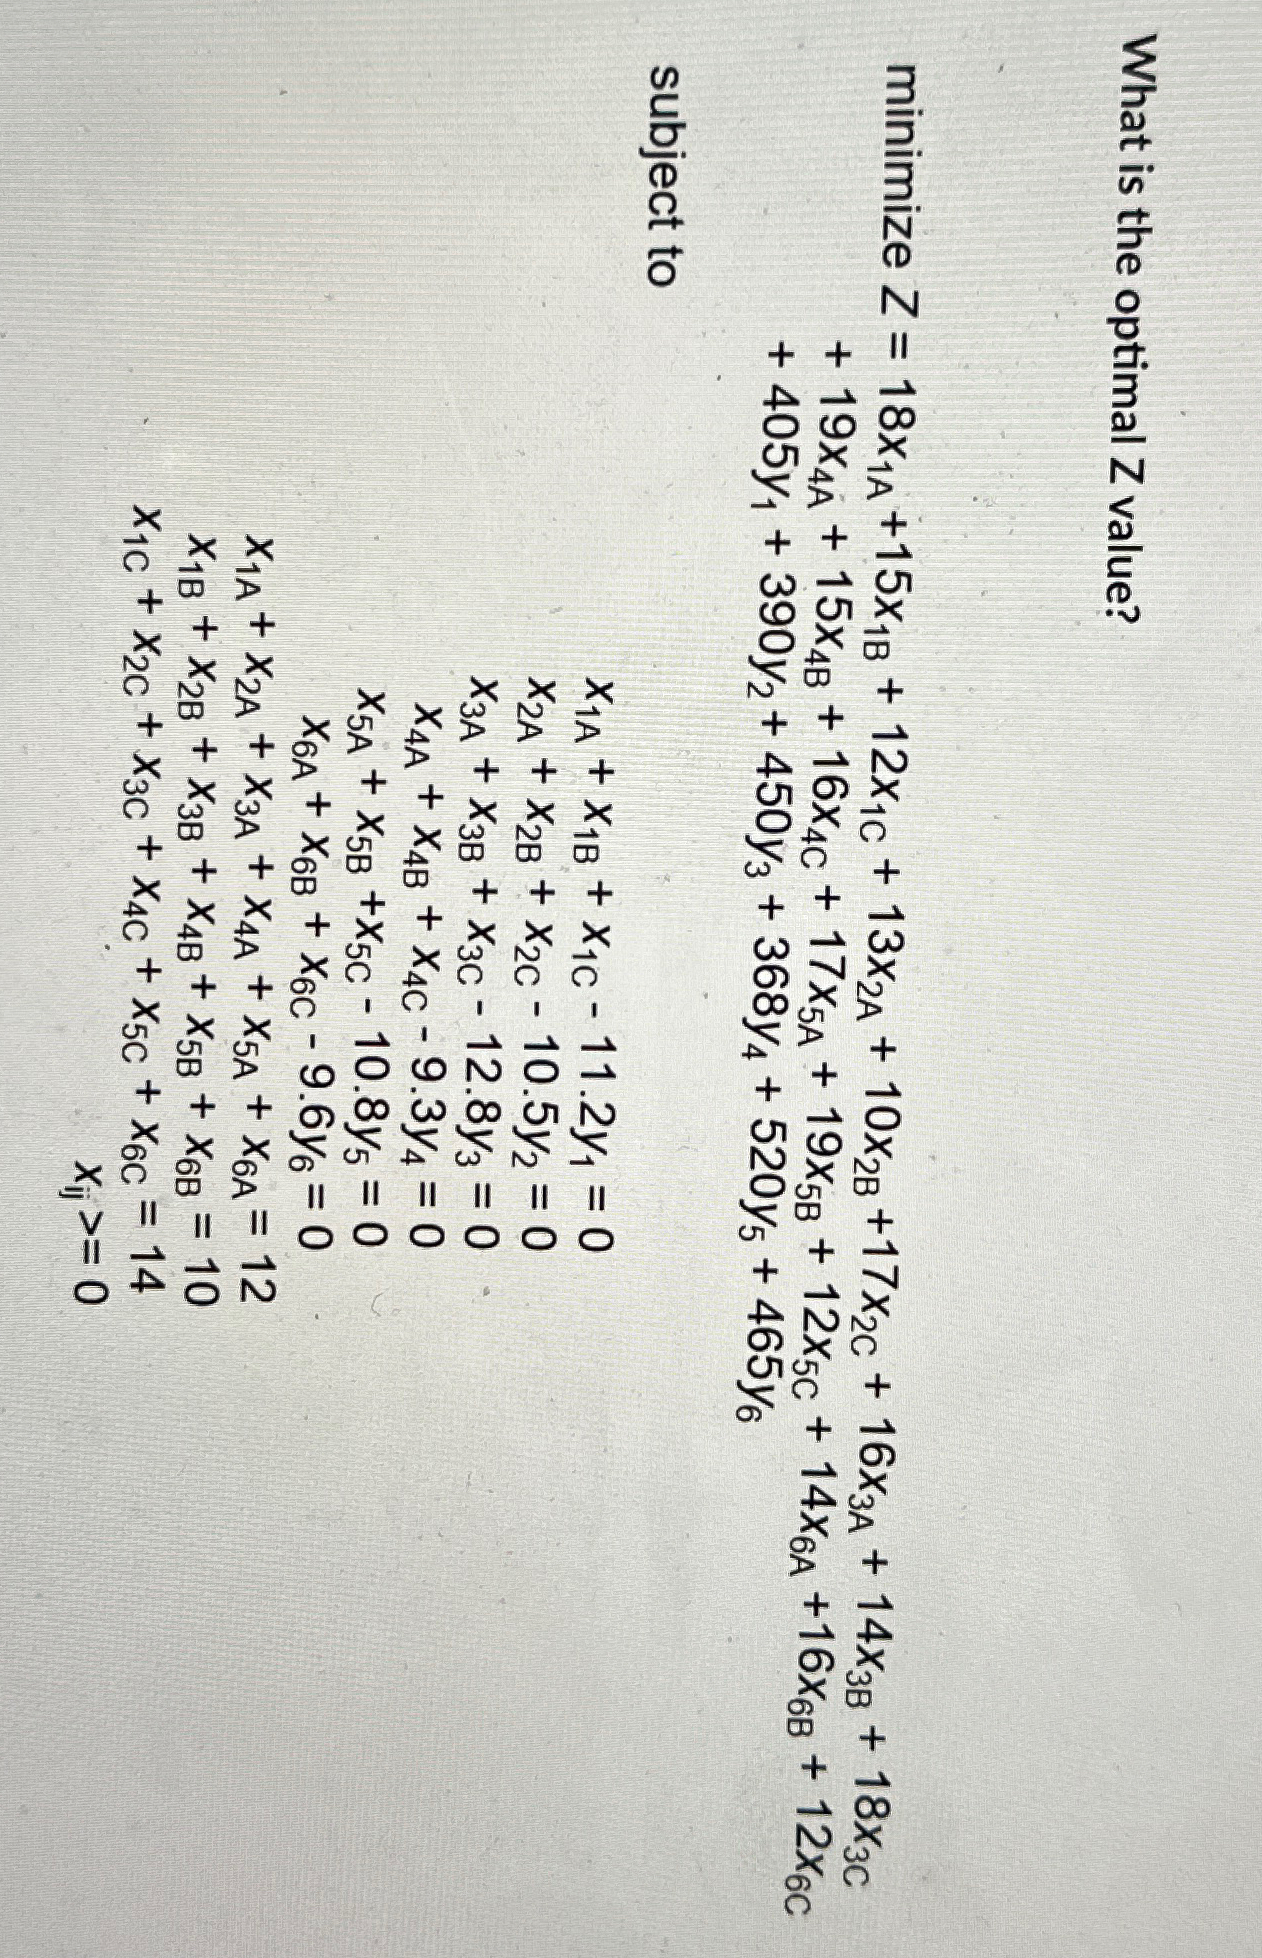 What is the optimal Z value?
minimize Z = 18x1A +15x1B + 12x1C + 13x2A + 10x2B +17x2C + 16x3A + 14x3B + 18x3C
+ 19x4A + 15x4B + 16x4C + 17x5A + 19x5B + 12x5C + 14x6A +16x6B + 12x6C
+ 405y1 + 390y2 + 450y3 + 368y4 + 520y5 + 465y6
subject to
x1A + x1B + x1C - 11.2y1 = 0
x2A + x2B + x2C - 10.5y2 = 0
x3A + x3B + x3C - 12.8y3 = 0
x4A + x4B + x4C - 9.3y4 = 0
x5A + x5B +x5C - 10.8y5 = 0
x6A + x6B + x6C - 9.6y6 = 0
x1A + x2A + x3A + x4A + x5A + x6A = 12
x1B + x2B + x3B + x4B + x5B + x6B = 10
x1C + x2C + x3C + x4C + x5C + x6C = 14
xij >= 0